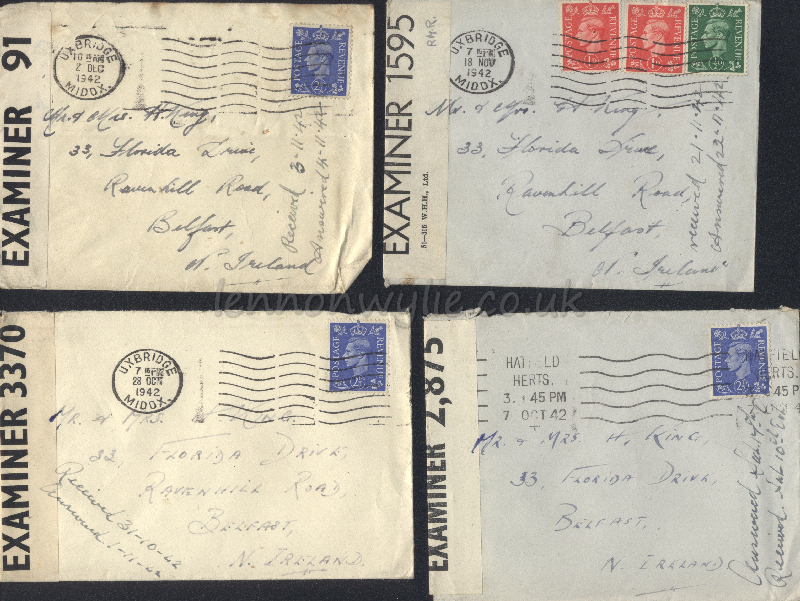 EXAMINER 91
UXBRIDGE
10 AM
2 DEC
1942
MIDDX.
POSTAGE REVENUE
2½
Mr. & Mrs. H. King,
33, Florida Drive,
Ravenhill Road,
Belfast,
N. Ireland
Received 3-11-42
Answered 4-11-42
EXAMINER 1595
51-316 W.H.H., Ltd.
UXBRIDGE
7 PM
18 NOV
1942
MIDDX.
POSTAGE REVENUE
POSTAGE REVENUE
POSTAGE REVENUE
Mr. & Mrs. H King,
33, Florida Drive
Ravenhill Road,
Belfast,
N. Ireland
received 21-11-42
Answered 22-11-42
lennonwylie.co.uk
EXAMINER 3370
UXBRIDGE
7 PM
28 OCT
1942
MIDDX.
POSTAGE REVENUE
2½
Mr. & Mrs. H King
33, Florida Drive,
Ravenhill Road,
Belfast,
N. Ireland.
Received 31-10-42
Answered 1-11-42
EXAMINER 2,875
HATFIELD
HERTS.
3. 45 PM
7 OCT 42
POSTAGE REVENUE
2½
HATFIELD
HERTS.
45 PM
Mr. & Mrs. H. King,
33, Florida Drive,
Belfast,
N. Ireland
Answered
Received Sat 10th Oct